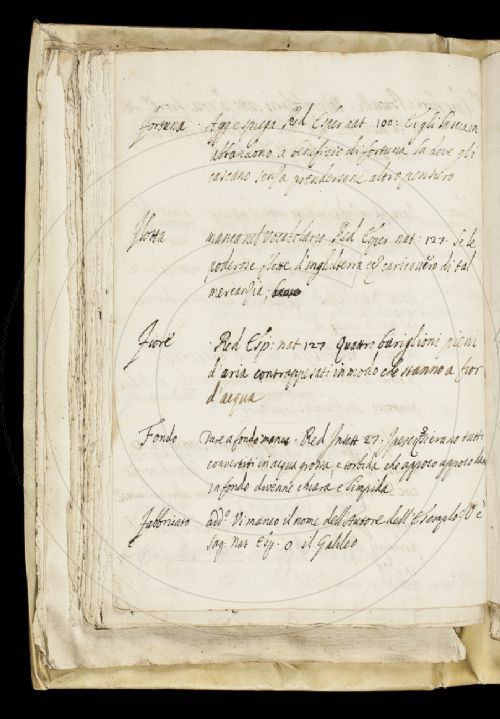 fortuna. Agg. e spiega Red Esper nat. 100. E gli lascia in
abbandono, a benefizio di fortuna la dove gli
cascano senza prendersene altro pensiero
Flotta manca nel vocabolario Red Esper nat: 127. Se le
poderose flotte d'inghilterra di tal
mercanzia;
Fiore . Red Esp: nat 127 Quattro bariglioni pieni
d'aria contrappesati in modo che stanno a fior
d'acqua
Fondo Dare a fondo manca. Red Insett 27. erano tutti
convertiti in acqua grossa, e torbida che appoco appoco
in fondo divenne chiara e limpida
fabbricato add.º Vi manca il nome dell'Autore dell'Esemplo. V è
Sag. Nat Esp. o il Galileo